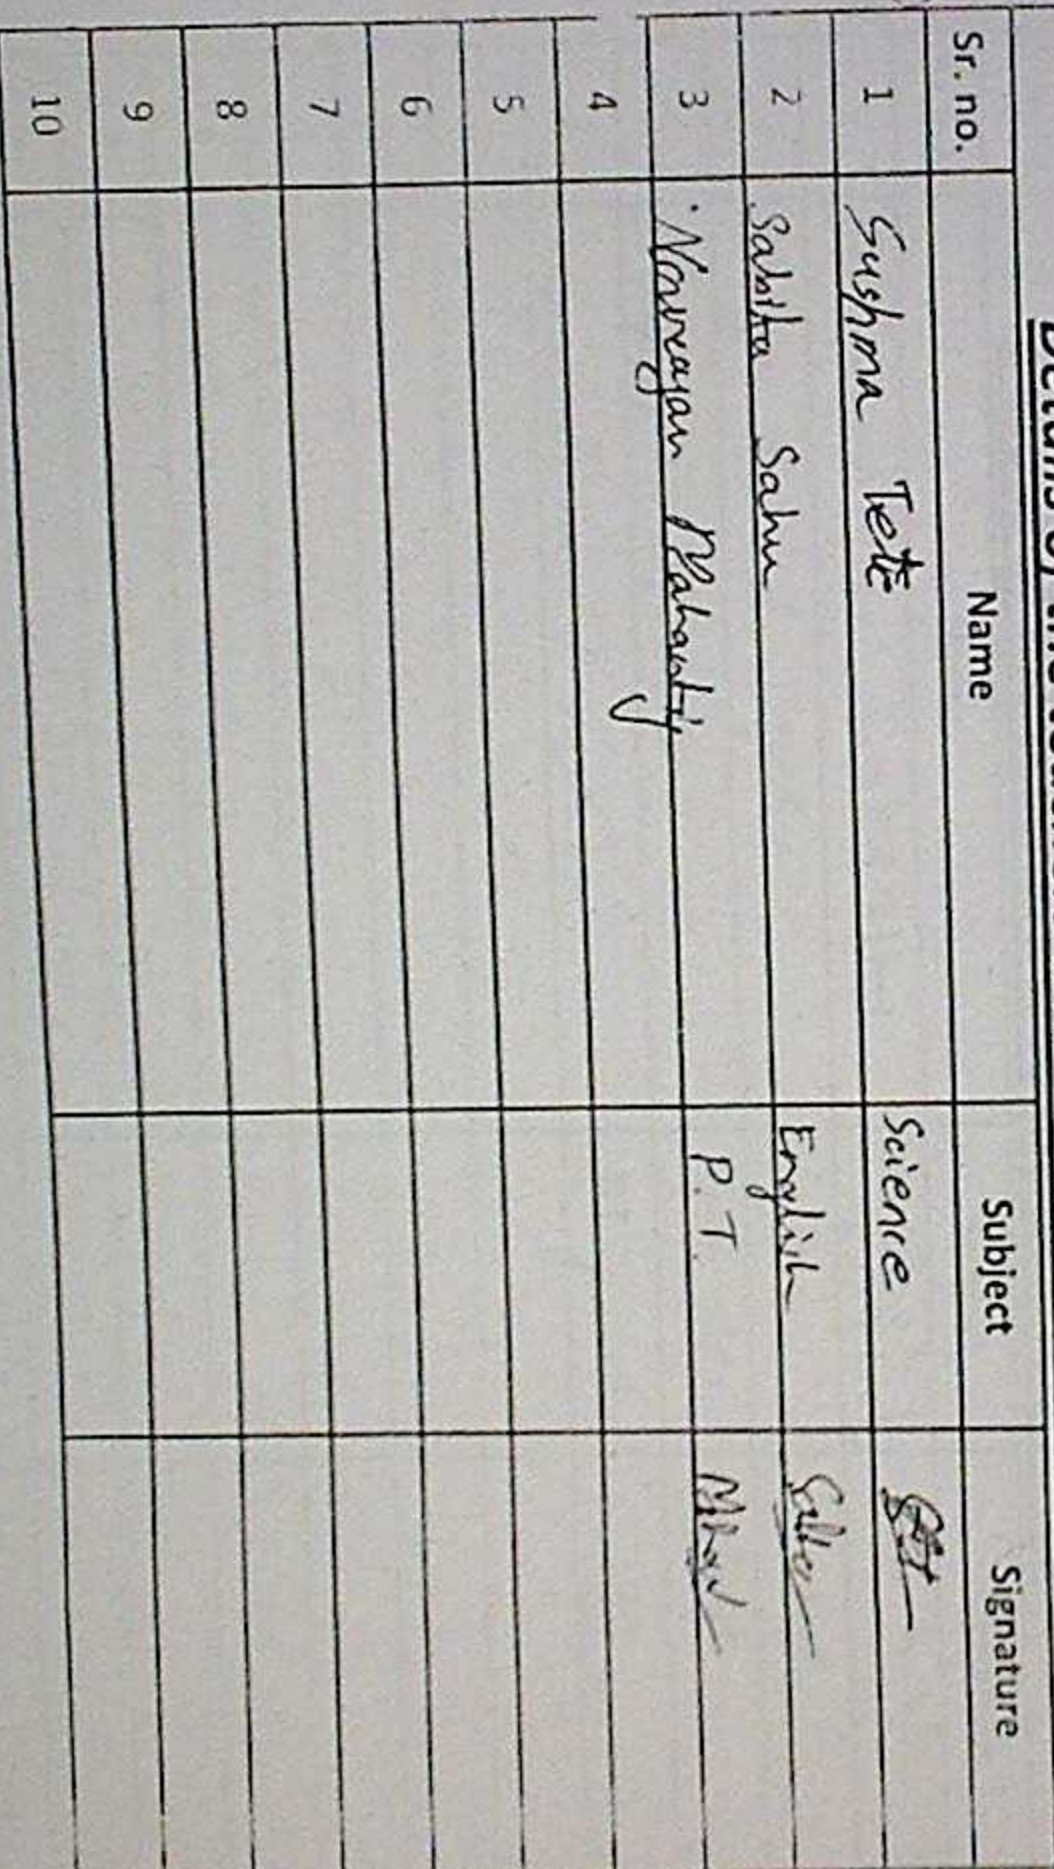 Details of the
Sr. no. Name Subject Signature
1 Sushma Tete Science
2 Sabita Sahu English
3 Narayan Mahanty P.T.
4
5
6
7
8
9
10